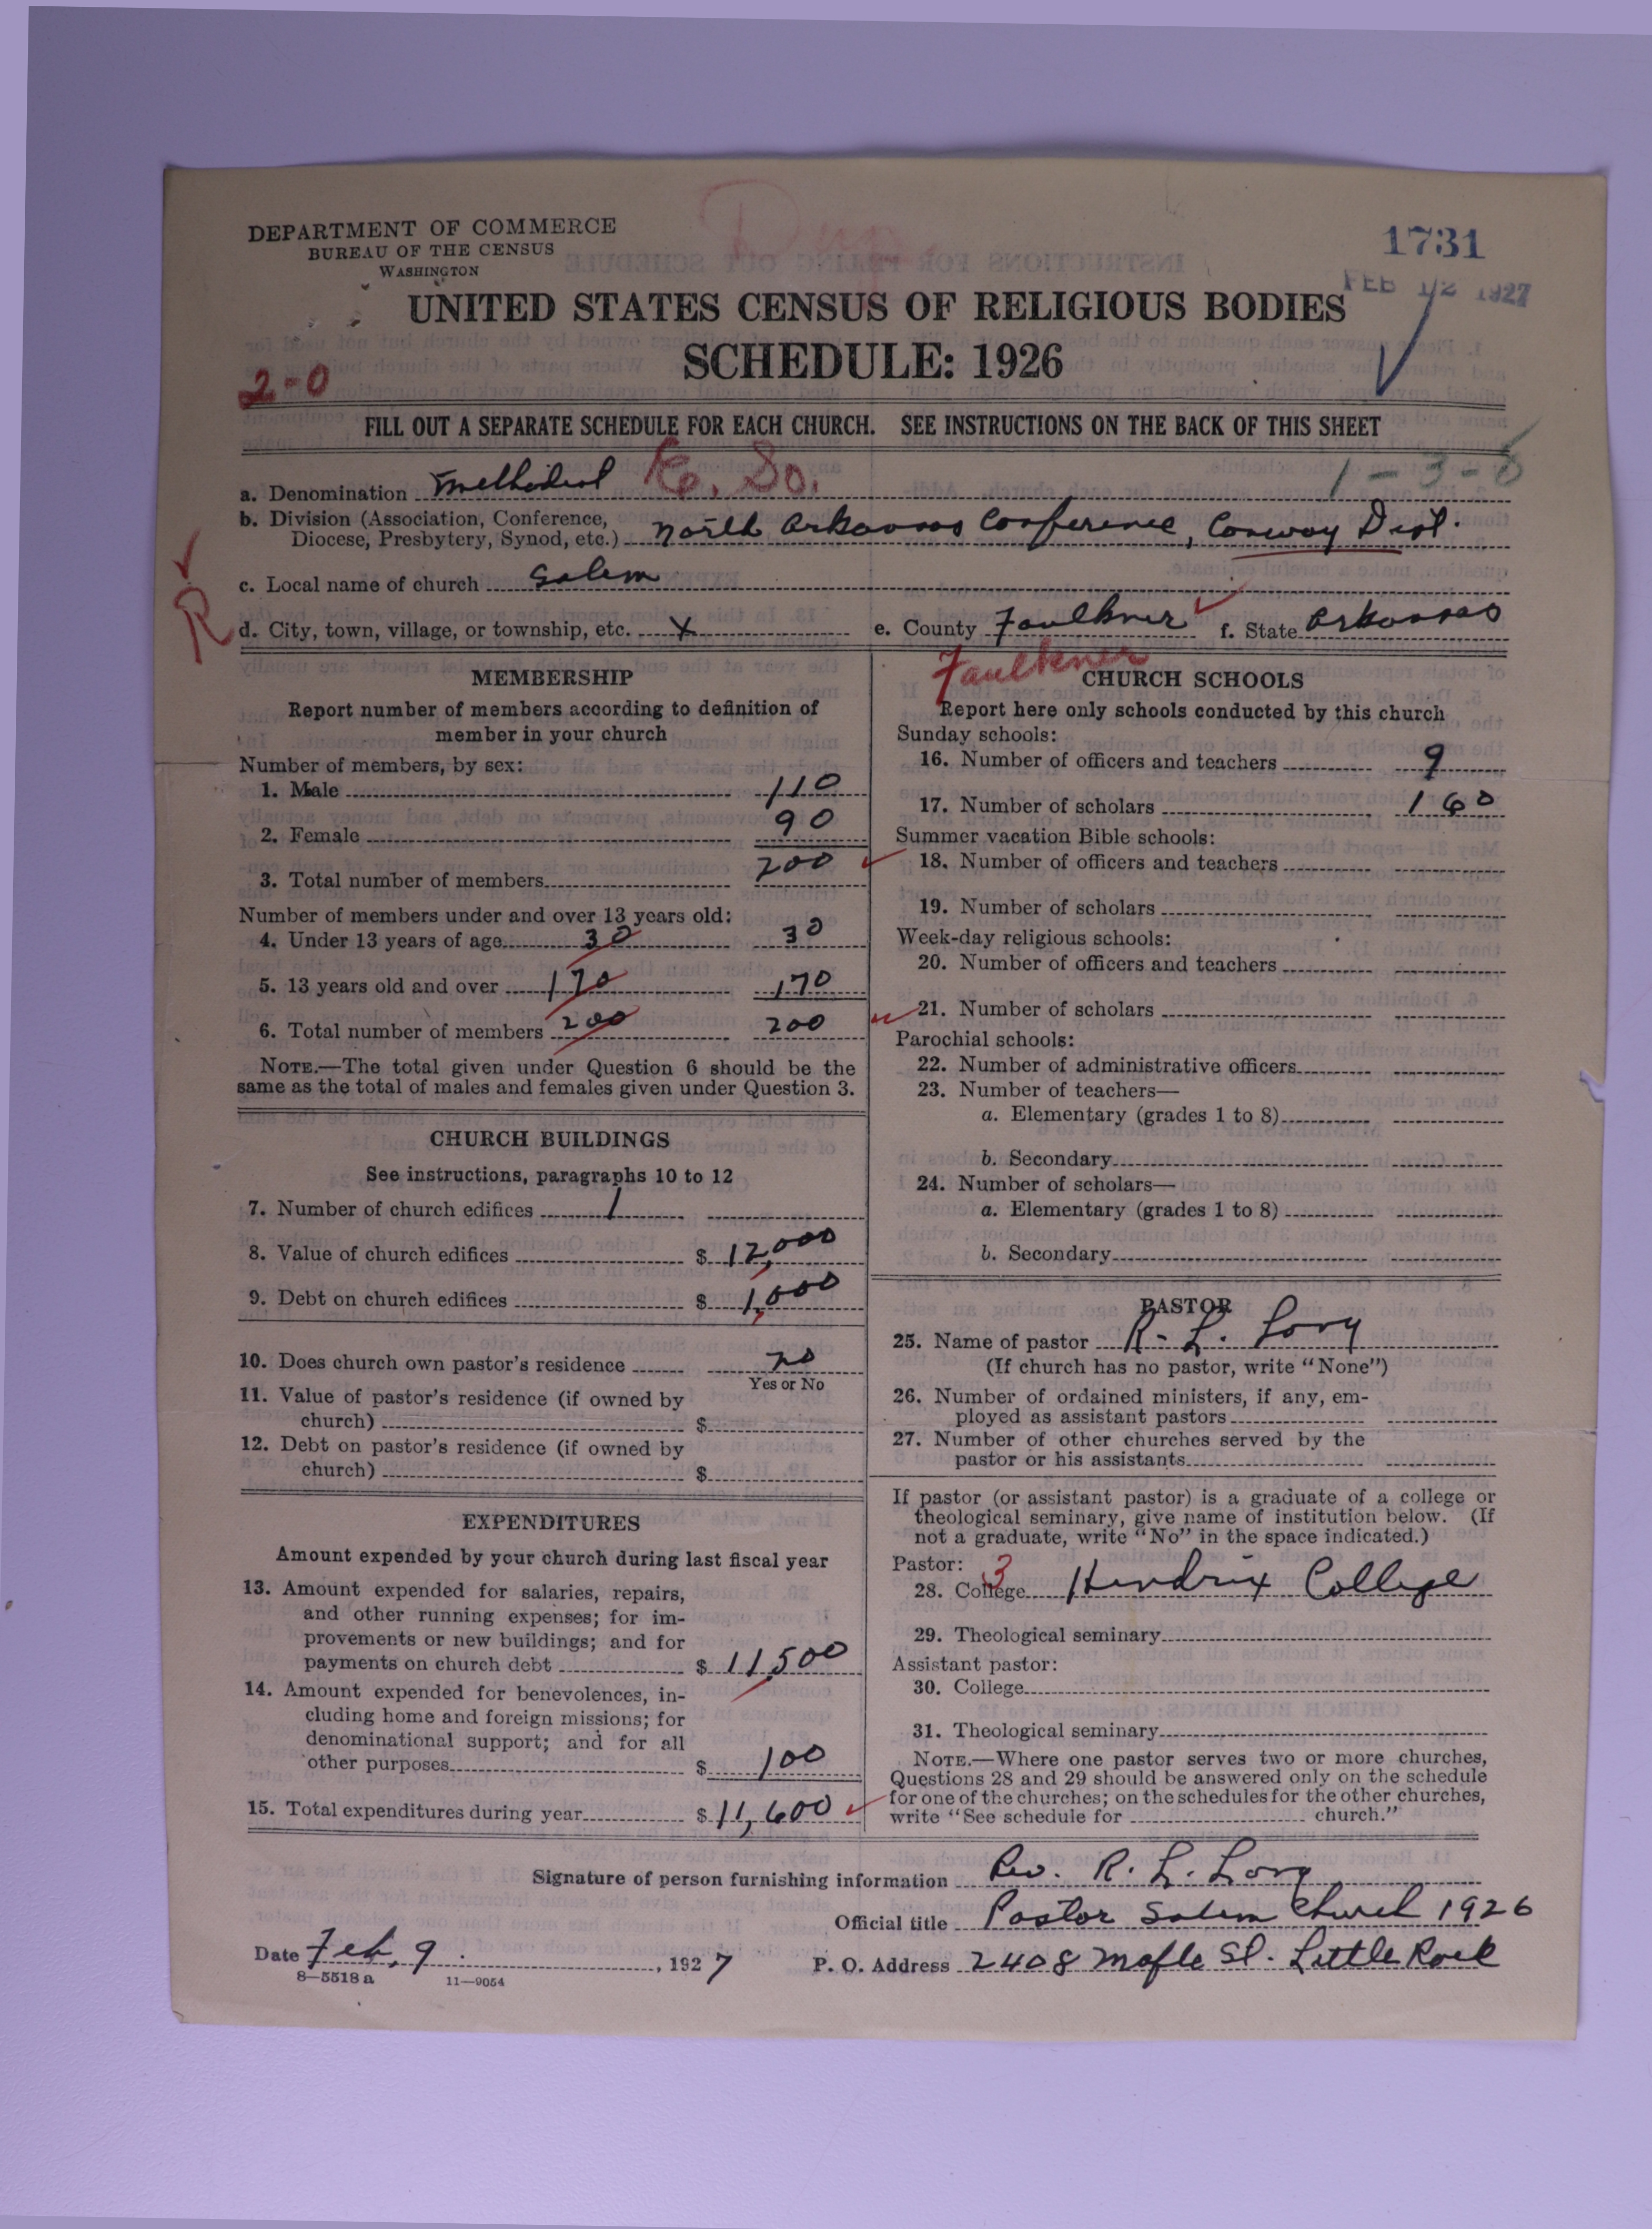 DEPARTMENT OF COMMERCE
BUREAU OF THE CENSUS
WASHINGTON
1731
FEB 12 1927
UNITED STATES CENSUS OF RELIGIOUS BODIES
SCHEDULE: 1926
2-0
FILL OUT A SEPARATE SCHEDULE FOR EACH CHURCH. SEE INSTRUCTIONS ON THE BACK OF THIS SHEET
1-3-6
a. Denomination Methodist E. So.
b. Division (Association, Conference,
Diocese, Presbytery, Synod, etc.) North Arkansas Conference, Conway Dist.
c. Local name of church Salem
R
d. City, town, village, or township, etc. X e. County Faulkner f. State Arkansas
MEMBERSHIP
Report number of members according to definition of
member in your church
Number of members, by sex:
1. Male 110
2. Female 90
3. Total number of members 200
Number of members under and over 13 years old:
4. Under 13 years of age 30 30
5. 13 years old and over 170 170
6. Total number of members 200 200
NOTE.—The total given under Question 6 should be the
same as the total of males and females given under Question 3.
CHURCH BUILDINGS
See instructions, paragraphs 10 to 12
7. Number of church edifices 1
8. Value of church edifices $ 12,000
9. Debt on church edifices $ 1,000
10. Does church own pastor's residence no
Yes or No
11. Value of pastor's residence (if owned by
church) $
12. Debt on pastor's residence (if owned by
church) $
EXPENDITURES
Amount expended by your church during last fiscal year
13. Amount expended for salaries, repairs,
and other running expenses; for im-
provements or new buildings; and for
payments on church debt $ 11,500
14. Amount expended for benevolences, in-
cluding home and foreign missions; for
denominational support; and for all
other purposes $ 100
15. Total expenditures during year $ 11,600
Faulkner
CHURCH SCHOOLS
Report here only schools conducted by this church
Sunday schools:
16. Number of officers and teachers 9
17. Number of scholars 160
Summer vacation Bible schools:
18. Number of officers and teachers
19. Number of scholars
Week-day religious schools:
20. Number of officers and teachers
21. Number of scholars
Parochial schools:
22. Number of administrative officers
23. Number of teachers—
a. Elementary (grades 1 to 8)
b. Secondary
24. Number of scholars—
a. Elementary (grades 1 to 8)
b. Secondary
PASTOR
25. Name of pastor R. L. Long
(If church has no pastor, write "None")
26. Number of ordained ministers, if any, em-
ployed as assistant pastors
27. Number of other churches served by the
pastor or his assistants
If pastor (or assistant pastor) is a graduate of a college or
theological seminary, give name of institution below. (If
not a graduate, write "No" in the space indicated.)
Pastor: 3
28. College Hendrix College
29. Theological seminary
Assistant pastor:
30. College
31. Theological seminary
NOTE.—Where one pastor serves two or more churches,
Questions 28 and 29 should be answered only on the schedule
for one of the churches; on the schedules for the other churches,
write "See schedule for church."
Signature of person furnishing information Rev. R. L. Long
Official title Pastor Salem Church 1926
Date Feb. 9., 1927 P. O. Address 2408 Maple St. Little Rock
8—5518 a 11—9054